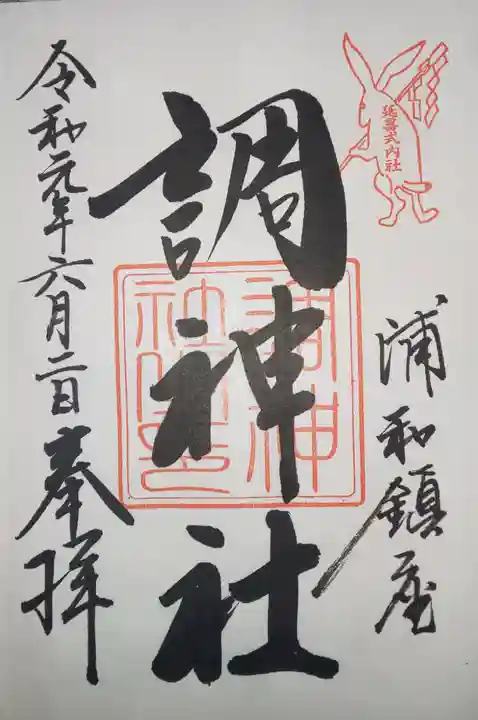 延喜式内社
浦和鎮座
調神社
調神社印
令和元年六月二日奉拝